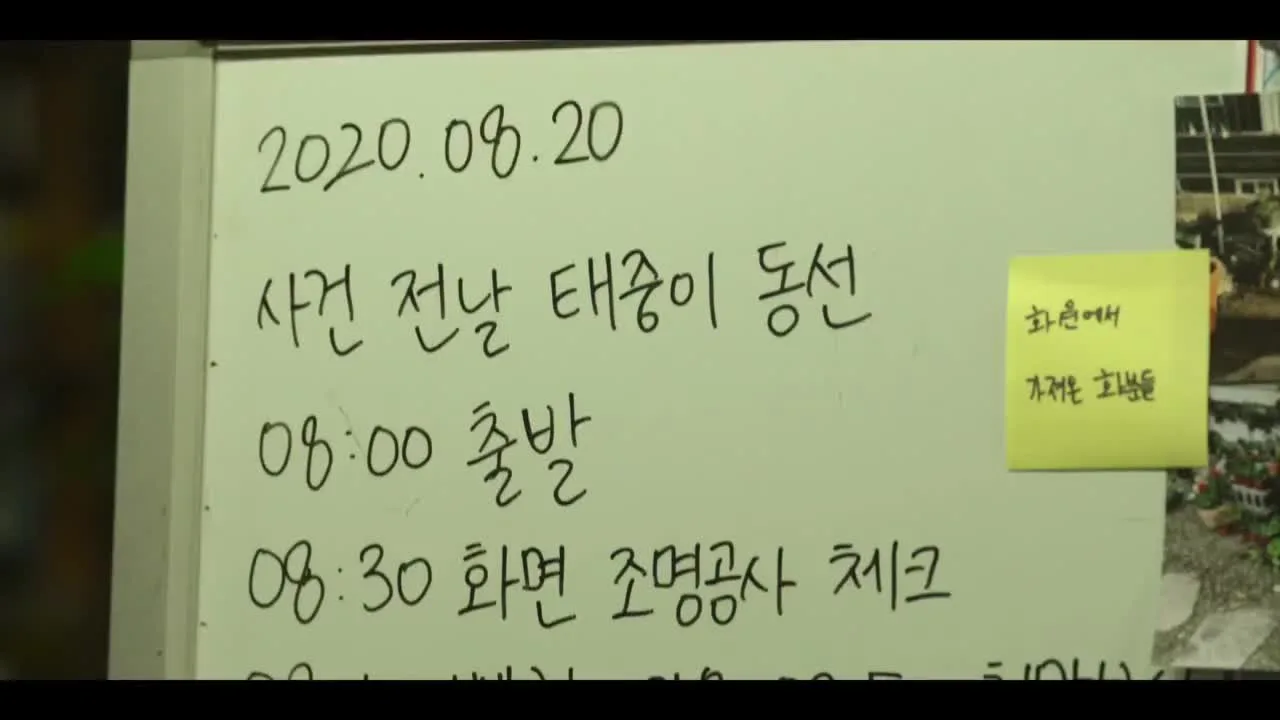 2020.08.20
사건 전날 태중이 동선
08:00 출발
08:30 화면 조명공사 체크
화원에서
가져온 화분들